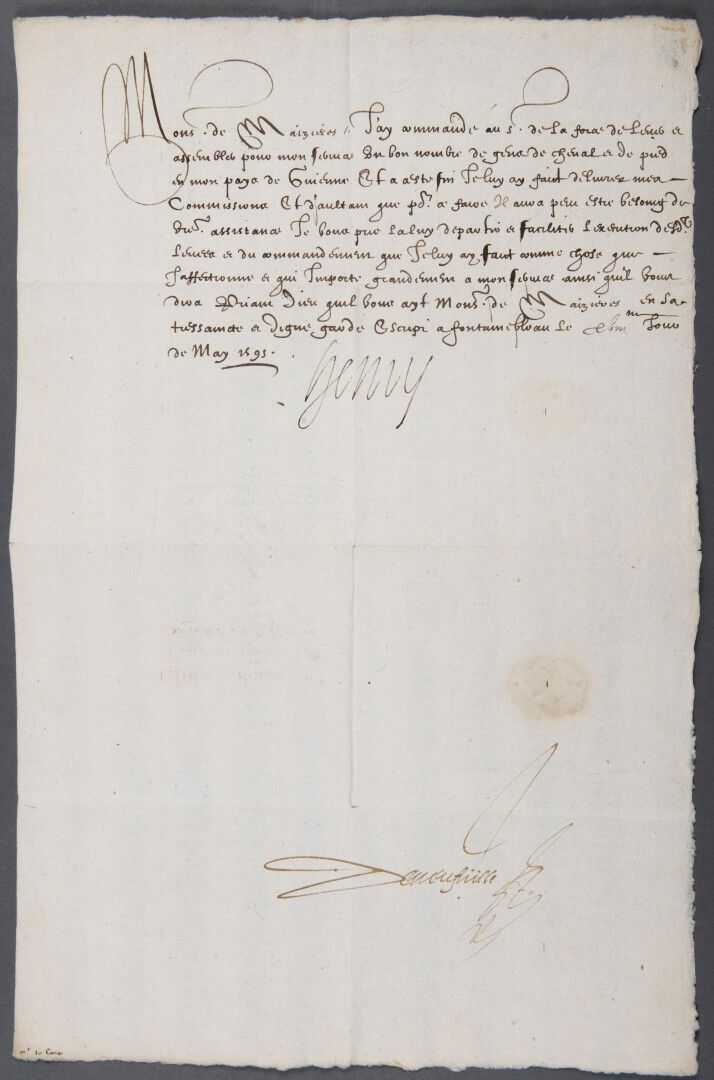 Mons.r de Maizieres, J'ay commandé au s.r de la force de lever et
assembler pour mon service un bon nombre de gens de cheval et de pied
en mon pays de Guienne Et a ceste fin Je luy ay faict delivrer mes
Commissions Et d'aultant que po.r ce faire Il aura peu estre besoing de
v're assistance Je vous prie la luy departir et faciliter l'execution desd.
levees et du commandement que Je luy ay faict comme chose que
J'affectionne et qui Importe grandement a mon service ainsi qu'il vous
dira Priant Dieu qu'il vous ayt Mons.r de Maizieres en sa
tressaincte et digne garde Escript a fontainebleau le jour
de May 1595.
Henry
Deneufville